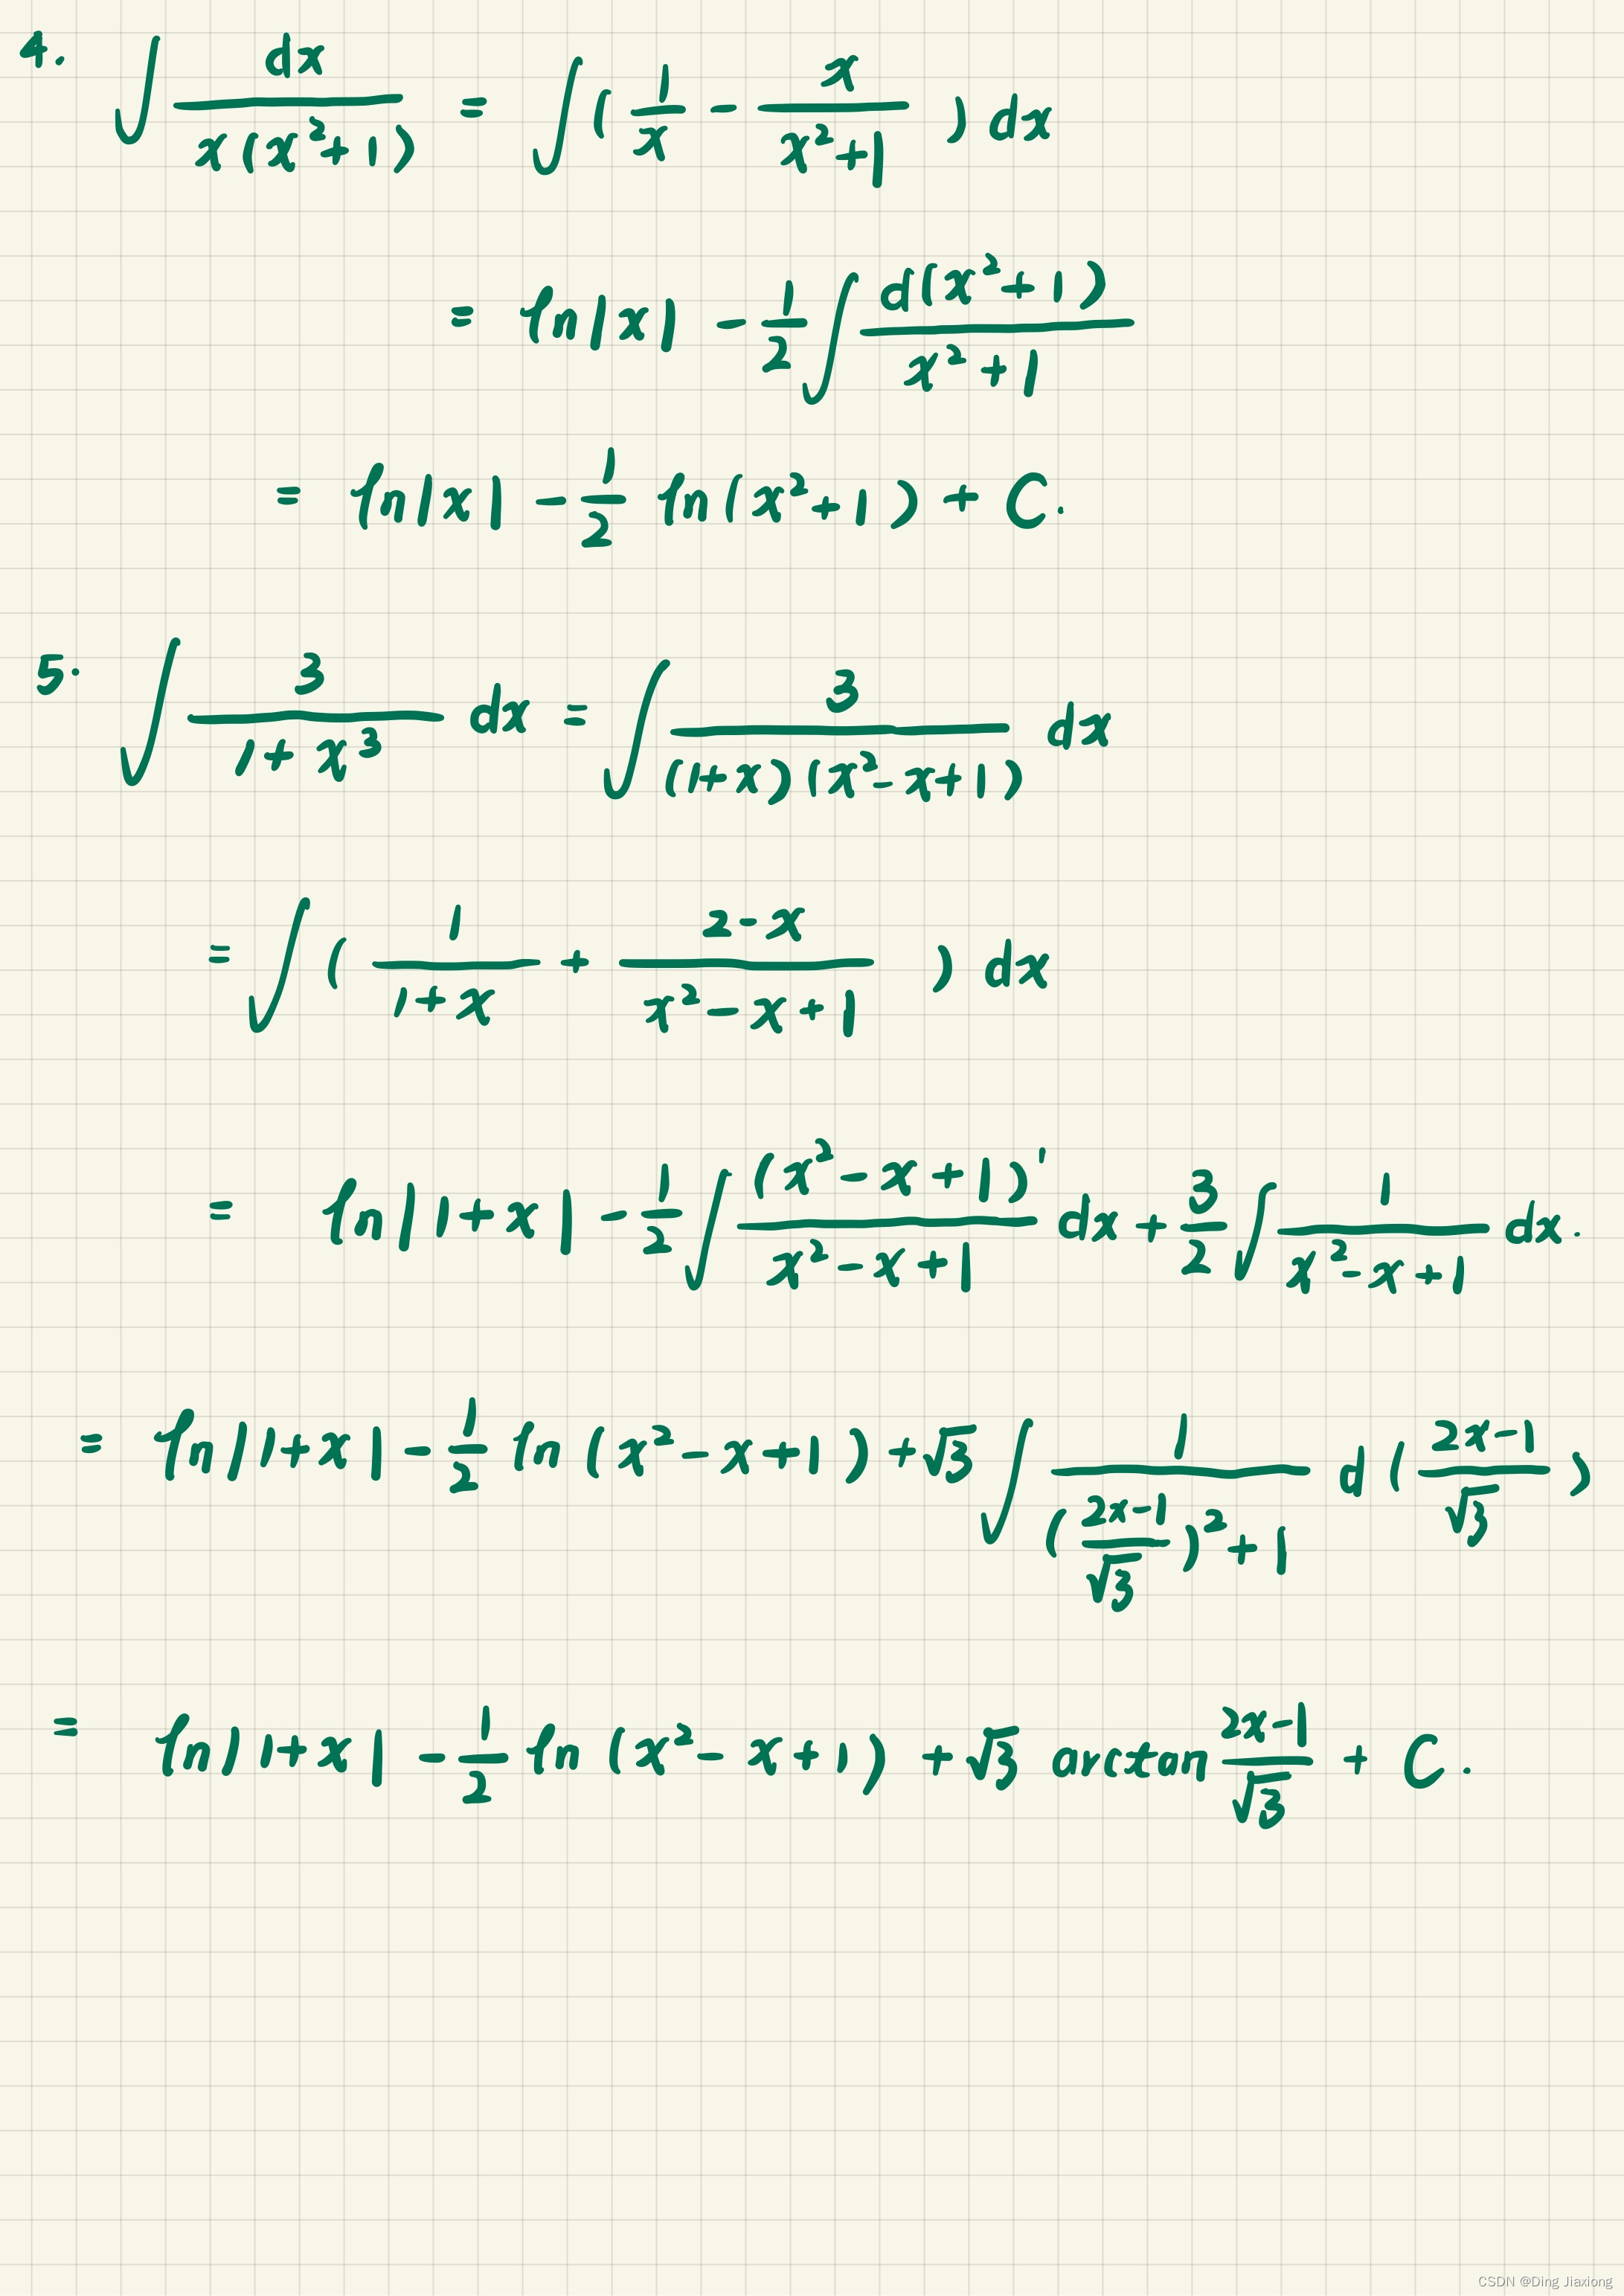 4. ∫ dx / x(x²+1) = ∫ ( 1/x - x/(x²+1) ) dx
= ln|x| - 1/2 ∫ d(x²+1) / (x²+1)
= ln|x| - 1/2 ln(x²+1) + C.
5. ∫ 3/(1+x³) dx = ∫ 3/((1+x)(x²-x+1)) dx
= ∫ ( 1/(1+x) + (2-x)/(x²-x+1) ) dx
= ln|1+x| - 1/2 ∫ (x²-x+1)'/(x²-x+1) dx + 3/2 ∫ 1/(x²-x+1) dx.
= ln|1+x| - 1/2 ln(x²-x+1) + √3 ∫ 1/(((2x-1)/√3)²+1) d((2x-1)/√3)
= ln|1+x| - 1/2 ln(x²-x+1) + √3 arctan (2x-1)/√3 + C.
CSDN @Ding Jiaxiong